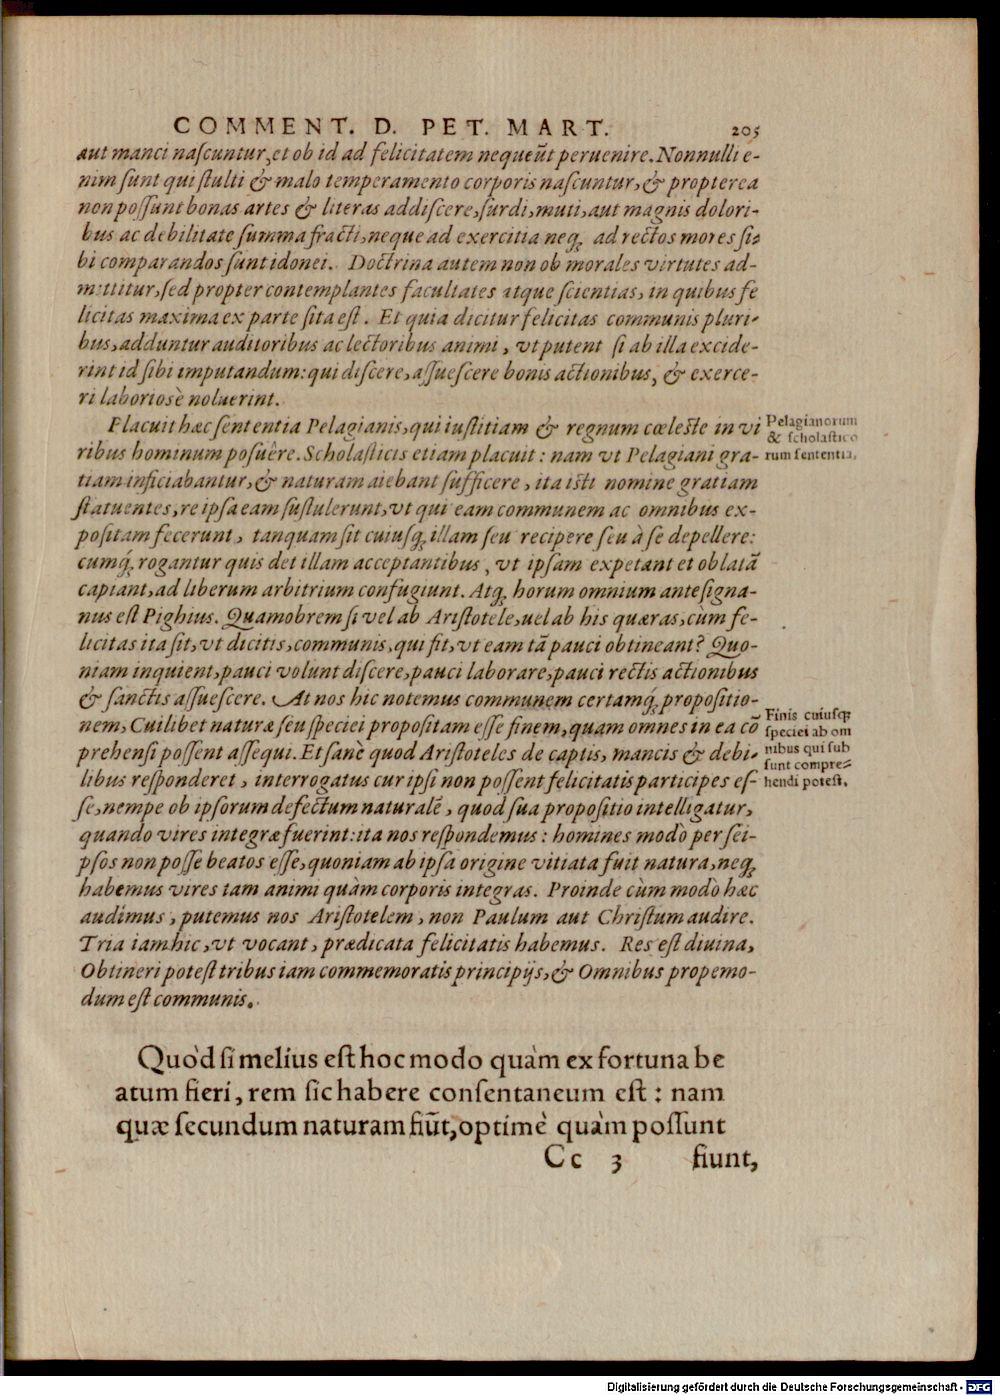 COMMENT. D. PET. MART. 205
aut manci naſcuntur, et ob id ad felicitatem nequeūt peruenire. Nonnulli e-
nim ſunt qui ſtulti & malo temperamento corporis naſcuntur, & propterea
non poſſunt bonas artes & literas addiſcere, ſurdi, muti, aut magnis dolori-
bus ac debilitate ſumma fracti, neque ad exercitia neq; ad rectos mores ſi-
bi comparandos ſunt idonei. Doctrina autem non ob morales virtutes ad-
mittitur, ſed propter contemplantes facultates atque ſcientias, in quibus fe
licitas maxima ex parte ſita eſt. Et quia dicitur felicitas communis pluri-
bus, adduntur auditoribus ac lectoribus animi, vt putent ſi ab illa excide-
rint id ſibi imputandum: qui diſcere, aſſueſcere bonis actionibus, & exerce-
ri laboriosè noluerint.
Placuit hæc ſententia Pelagianis, qui iuſtitiam & regnum cœleſte in vi
ribus hominum poſuêre. Scholaſticis etiam placuit: nam vt Pelagiani gra-
tiam inficiabantur, & naturam aiebant ſufficere, ita iſti nomine gratiam
ſtatuentes, re ipſa eam ſuſtulerunt, vt qui eam communem ac omnibus ex-
poſitam fecerunt, tanquam ſit cuiuſq; illam ſeu recipere ſeu à ſe depellere:
cumq́; rogantur quis det illam acceptantibus, vt ipſam expetant et oblatā
capiant, ad liberum arbitrium confugiunt. Atq; horum omnium anteſigna-
nus eſt Pighius. Quamobrem ſi vel ab Ariſtotele, uel ab his quæras, cùm fe-
licitas ita ſit, vt dicitis, communis, qui fit, vt eam tā pauci obtineant? Quo-
niam inquient, pauci volunt diſcere, pauci laborare, pauci rectis actionibus
& ſanctis aſſueſcere. At nos hic notemus communem certamq́; propoſitio-
nem, Cuilibet naturæ ſeu ſpeciei propoſitam eſſe finem, quam omnes in ea cō
prehenſi poſſent aſſequi. Et ſanè quod Ariſtoteles de captis, mancis & debi-
libus reſponderet, interrogatus cur ipſi non poſſent felicitatis participes eſ-
ſe, nempe ob ipſorum defectum naturalē, quod ſua propoſitio intelligatur,
quando vires integræ fuerint: ita nos reſpondemus: homines modò per ſei-
pſos non poſſe beatos eſſe, quoniam ab ipſa origine vitiata fuit natura, neq;
habemus vires tam animi quàm corporis integras. Proinde cùm modò hæc
audimus, putemus nos Ariſtotelem, non Paulum aut Chriſtum audire.
Tria iam hic, vt vocant, prædicata felicitatis habemus. Res eſt diuina,
Obtineri poteſt tribus iam commemoratis principijs, & Omnibus propemo-
dum eſt communis.
Pelagianorum
& ſcholaſtico
rum ſententia.
Finis cuiuſq;
ſpeciei ab om
nibus qui ſub
ſunt compre-
hendi poteſt.
Quòd ſi melius eſt hoc modo quàm ex fortuna be
atum fieri, rem ſic habere conſentaneum eſt: nam
quæ ſecundum naturam fiūt, optimè quàm poſſunt
Cc 3 fiunt,
Digitalisierung gefördert durch die Deutsche Forschungsgemeinschaft - DFG